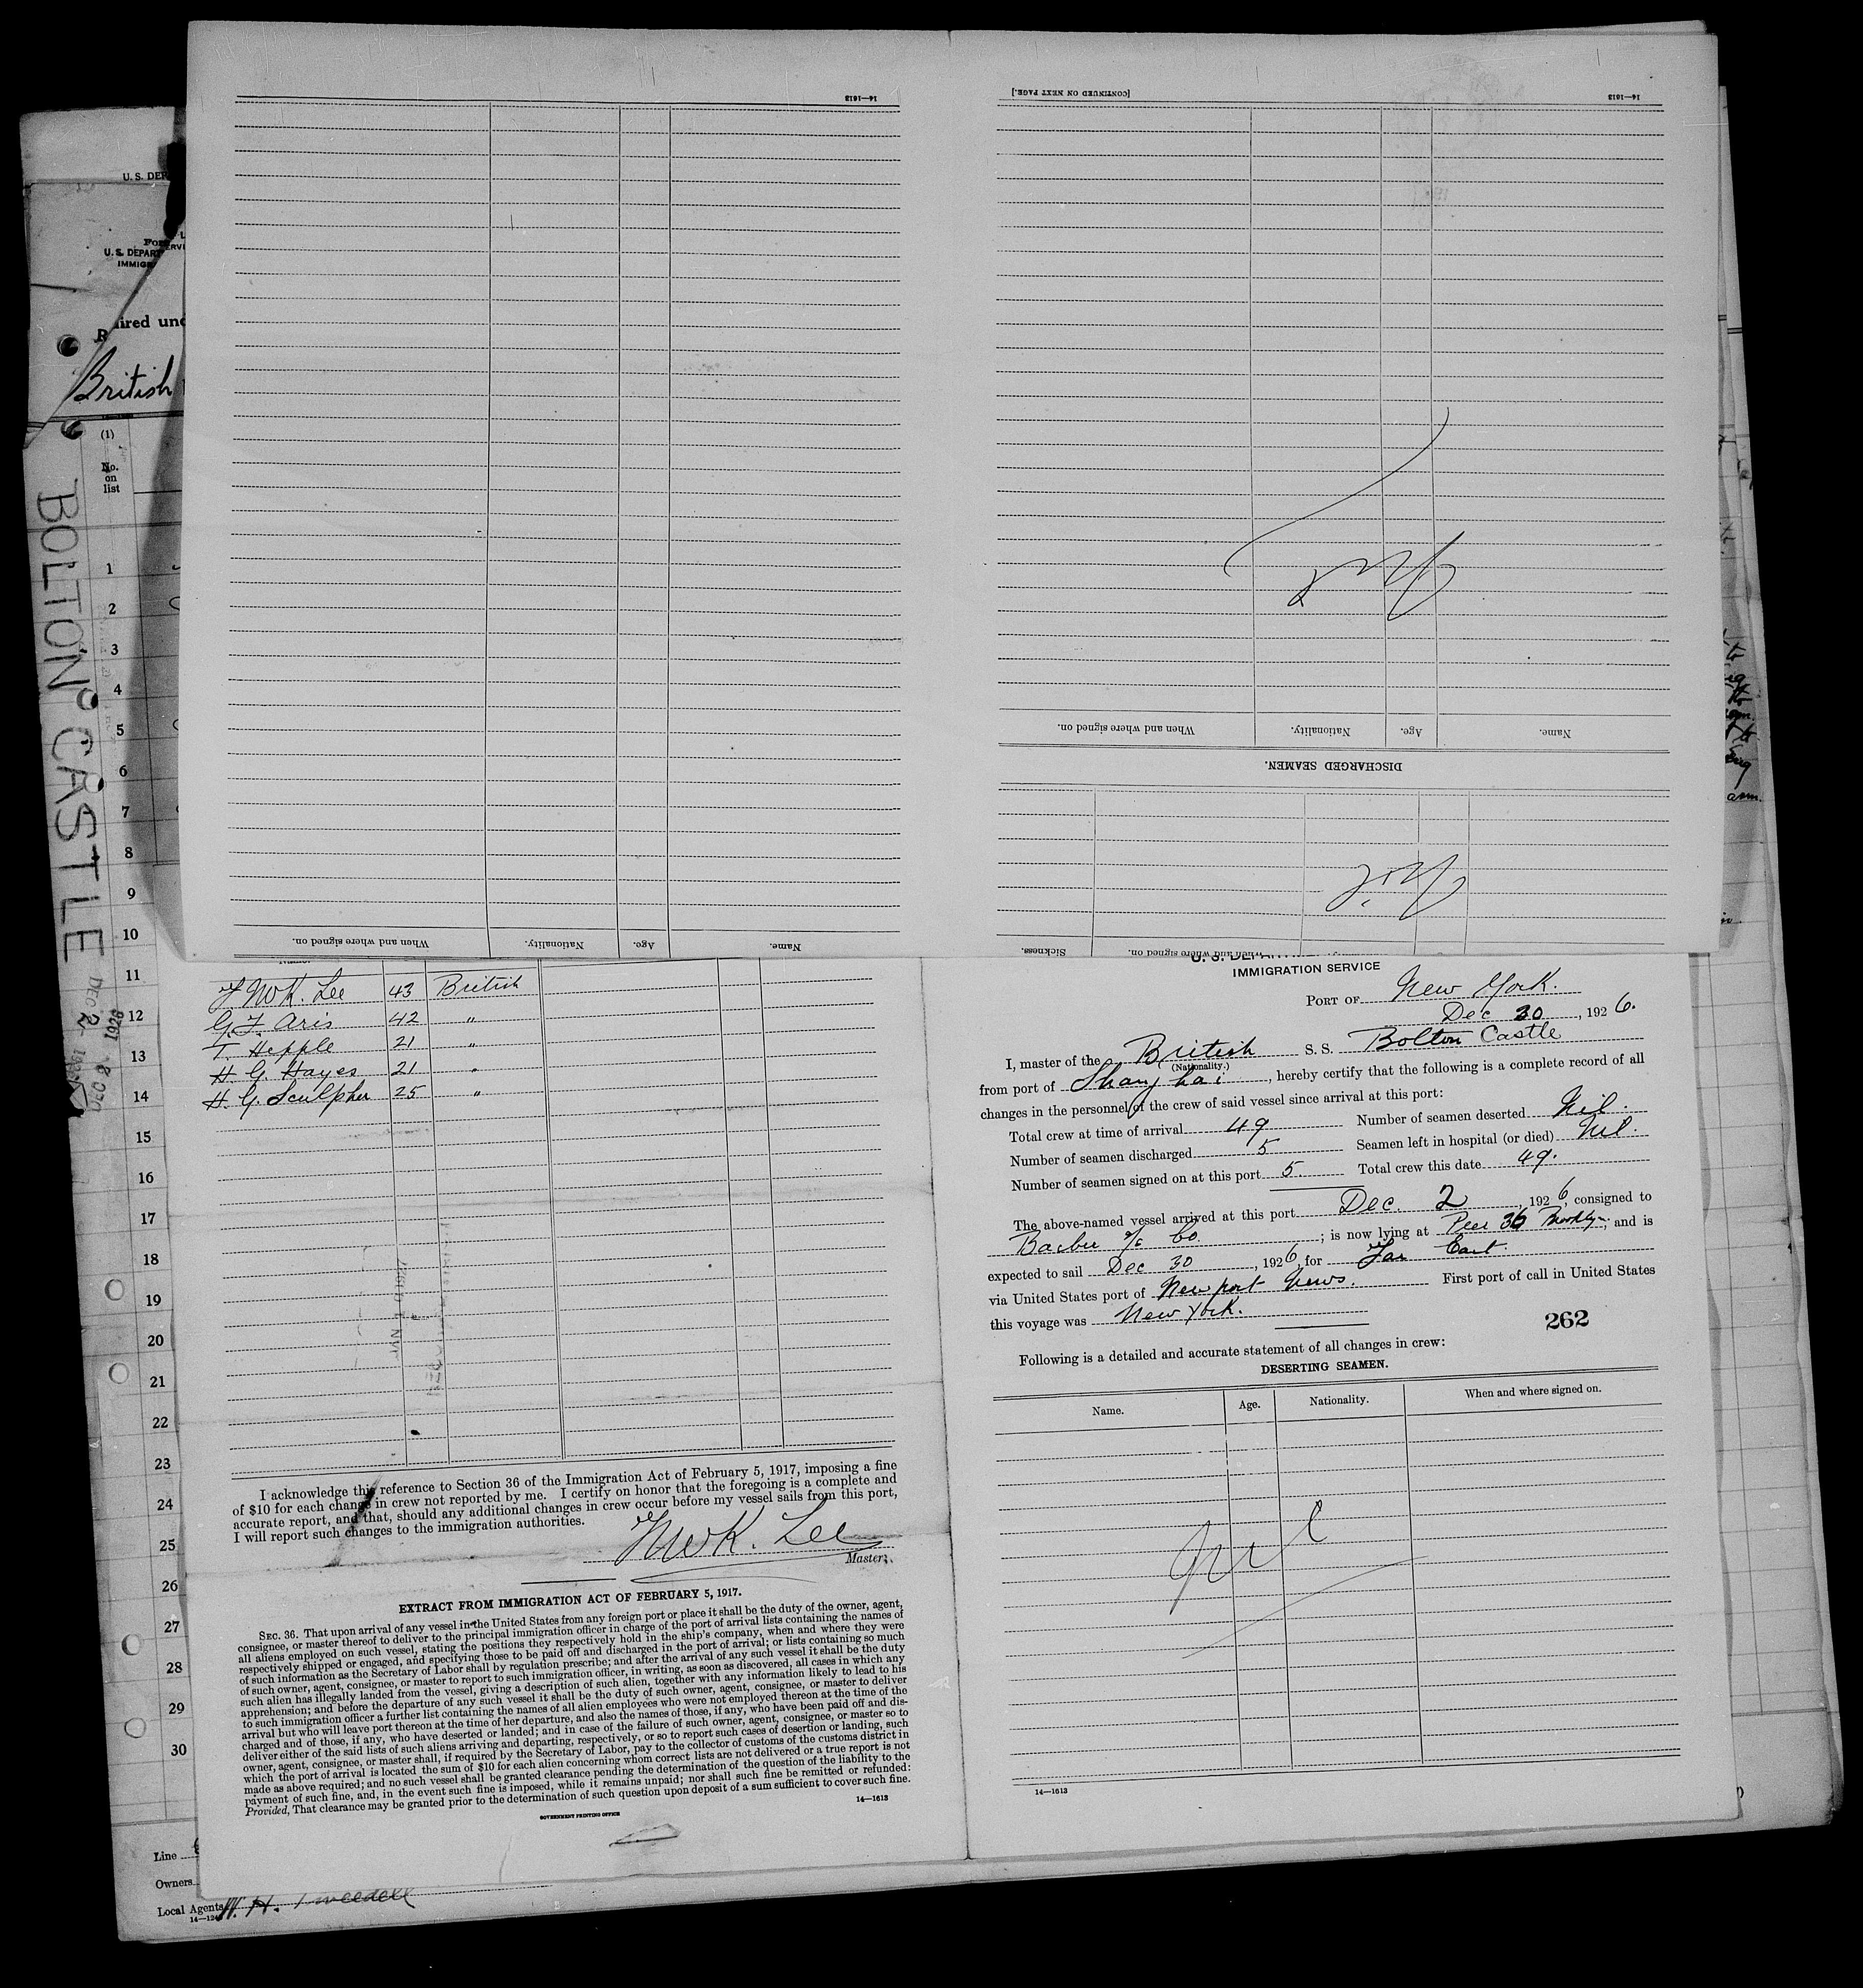 14—1613
[CONTINUED ON NEXT PAGE.]
14—1613
When and where signed on.
Nationality.
Age.
Name.
DISCHARGED SEAMEN.
Sickness.
When and where signed on.
When and where signed on.
Nationality.
Age.
Name.
U. S. DEP
U. S. DEPAR
IMMIGR
uired und
British
(1)
No.
on
list
BOLTON CASTLE
DEC 2 1926
DEC 2 1926
1
2
3
4
5
6
7
8
9
10
11
12
13
14
15
16
17
18
19
20
21
22
23
24
25
26
27
28
29
30
Line
Owners
Local Agents W. H. Tweedell
J MWK. Lee 43 British
G. F. Aris 42 "
T. Hepple 21 "
H. G. Hayes 21 "
H. G. Sculpher 25 "
I acknowledge this reference to Section 36 of the Immigration Act of February 5, 1917, imposing a fine
of $10 for each change in crew not reported by me. I certify on honor that the foregoing is a complete and
accurate report, and that, should any additional changes in crew occur before my vessel sails from this port,
I will report such changes to the immigration authorities.
JMWK. Lee
Master.
EXTRACT FROM IMMIGRATION ACT OF FEBRUARY 5, 1917.
SEC. 36. That upon arrival of any vessel in the United States from any foreign port or place it shall be the duty of the owner, agent,
consignee, or master thereof to deliver to the principal immigration officer in charge of the port of arrival lists containing the names of
all aliens employed on such vessel, stating the positions they respectively hold in the ship's company, when and where they were
respectively shipped or engaged, and specifying those to be paid off and discharged in the port of arrival; or lists containing so much
of such information as the Secretary of Labor shall by regulation prescribe; and after the arrival of any such vessel it shall be the duty
of such owner, agent, consignee, or master to report to such immigration officer, in writing, as soon as discovered, all cases in which any
such alien has illegally landed from the vessel, giving a description of such alien, together with any information likely to lead to his
apprehension; and before the departure of any such vessel it shall be the duty of such owner, agent, consignee, or master to deliver
to such immigration officer a further list containing the names of all alien employees who were not employed thereon at the time of the
arrival but who will leave port thereon at the time of her departure, and also the names of those, if any, who have been paid off and dis-
charged and of those, if any, who have deserted or landed; and in case of the failure of such owner, agent, consignee, or master so to
deliver either of the said lists of such aliens arriving and departing, respectively, or so to report such cases of desertion or landing, such
owner, agent, consignee, or master shall, if required by the Secretary of Labor, pay to the collector of customs of the customs district in
which the port of arrival is located the sum of $10 for each alien concerning whom correct lists are not delivered or a true report is not
made as above required; and no such vessel shall be granted clearance pending the determination of the question of the liability to the
payment of such fine, and, in the event such fine is imposed, while it remains unpaid; nor shall such fine be remitted or refunded:
Provided, That clearance may be granted prior to the determination of such question upon deposit of a sum sufficient to cover such fine.
GOVERNMENT PRINTING OFFICE
14—1613
IMMIGRATION SERVICE
PORT OF New York.
Dec 30, 1926.
I, master of the British S. S. Bolton Castle
(Nationality.)
from port of Shanghai, hereby certify that the following is a complete record of all
changes in the personnel of the crew of said vessel since arrival at this port:
Total crew at time of arrival 49 Number of seamen deserted Nil.
Number of seamen discharged 5 Seamen left in hospital (or died) Nil.
Number of seamen signed on at this port 5 Total crew this date 49.
The above-named vessel arrived at this port Dec. 2, 1926, consigned to
Barber S/S Co.; is now lying at Pier 36 Brooklyn, and is
expected to sail Dec 30, 1926, for Far East.
via United States port of Newport News. First port of call in United States
this voyage was New York.
262
Following is a detailed and accurate statement of all changes in crew:
DESERTING SEAMEN.
Name. Age. Nationality. When and where signed on.
Nil
14—1613